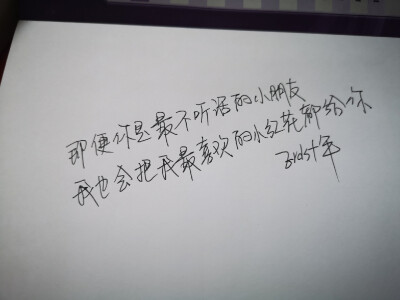 即便你是最不听话的小朋友
我也会把我最喜欢的小红花都给你